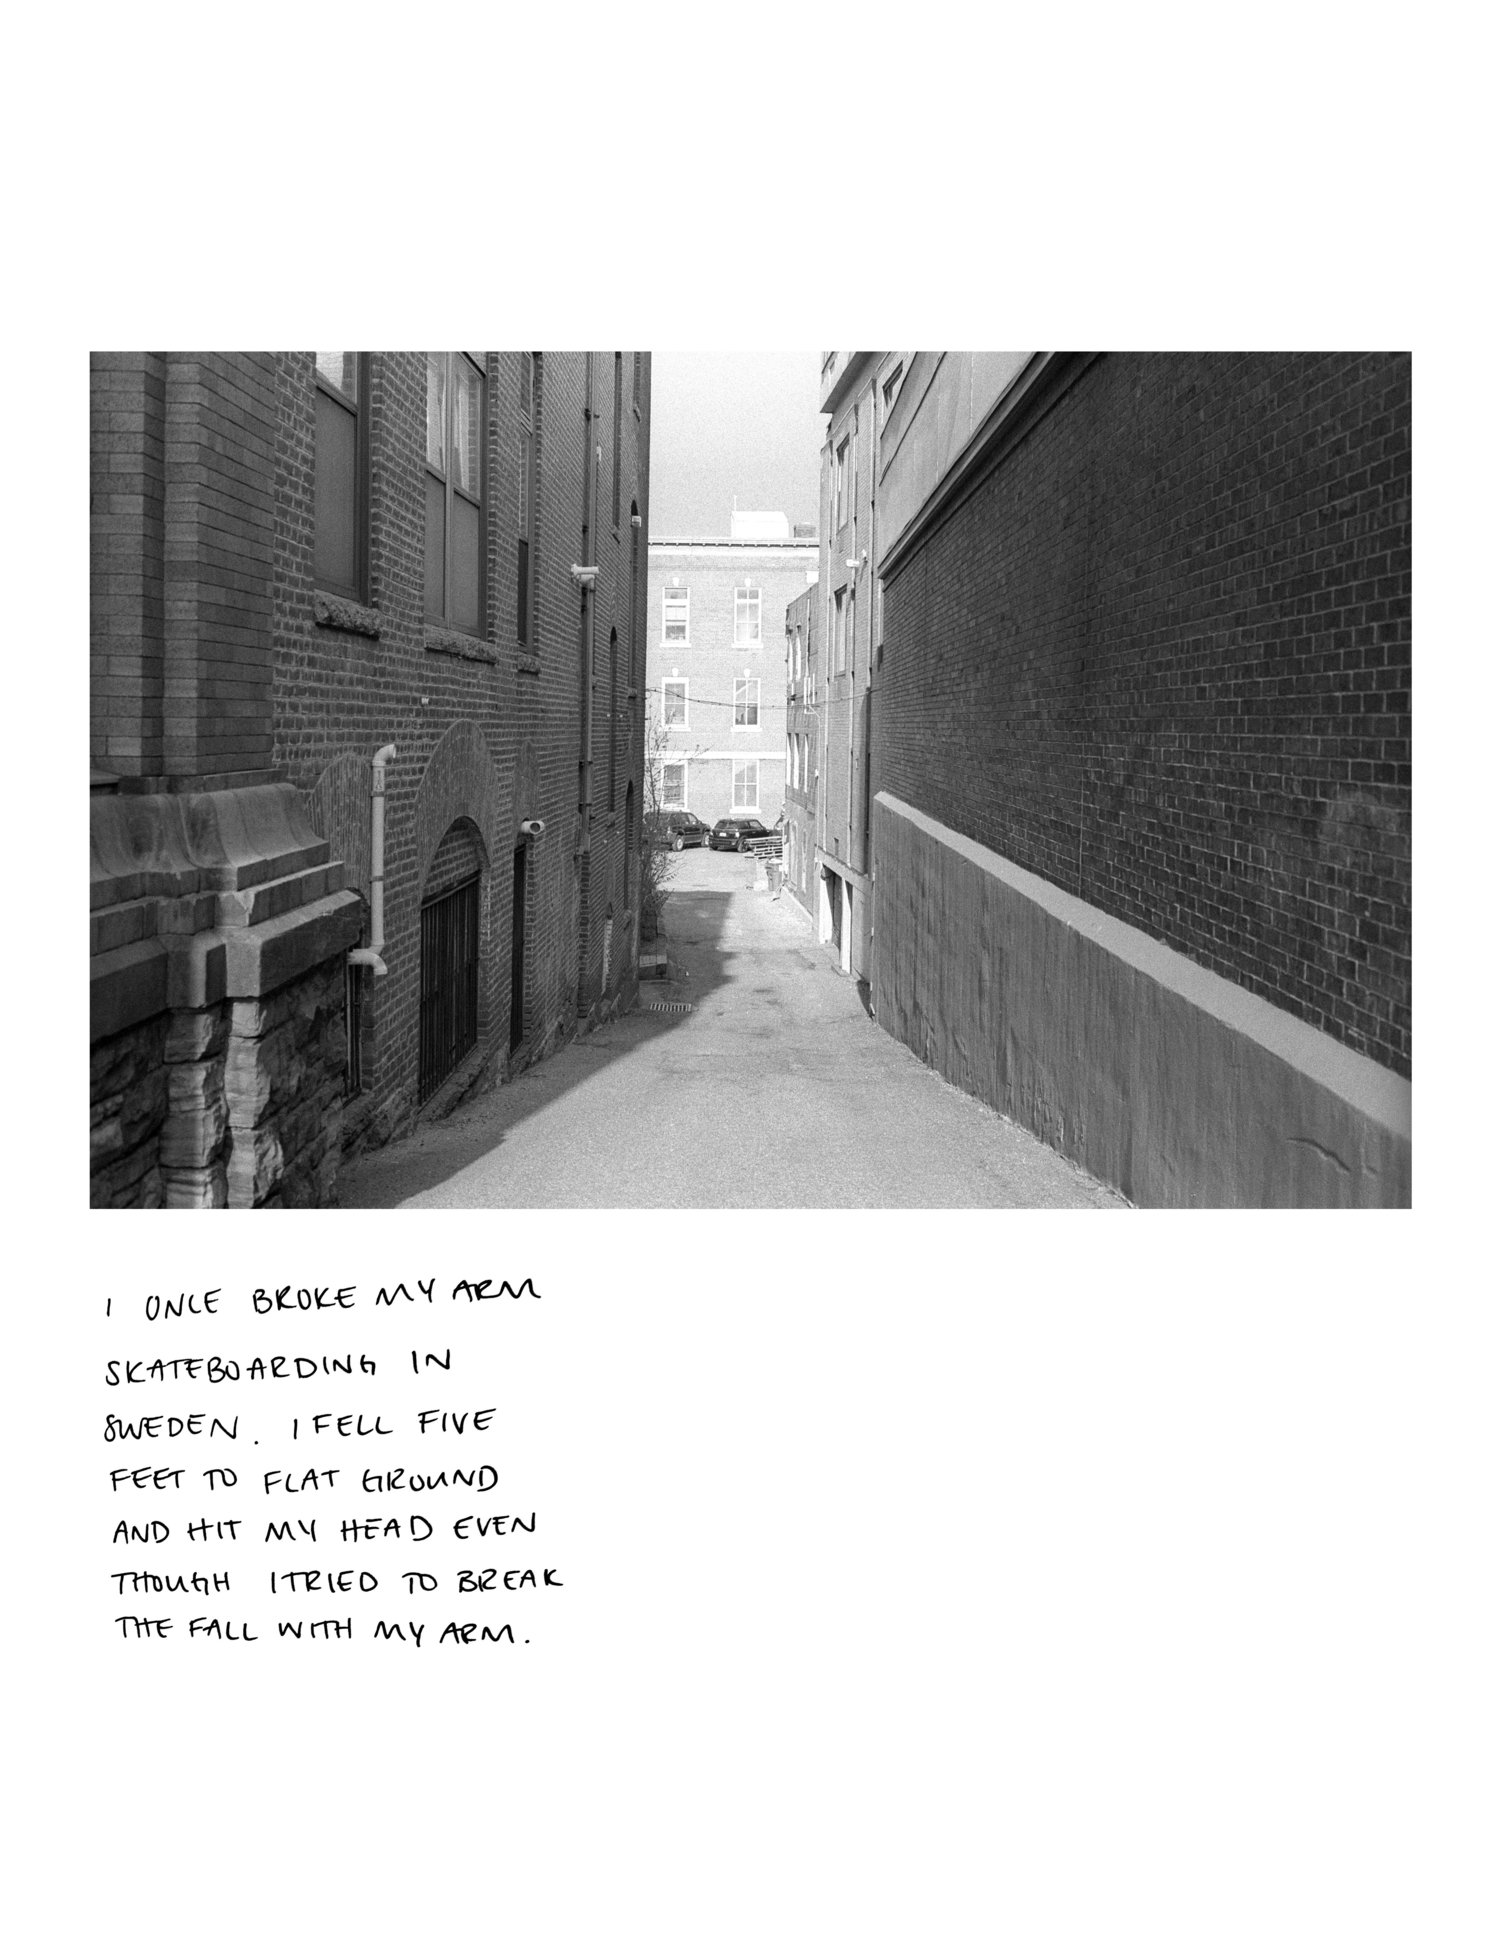 I ONCE BROKE MY ARM
SKATEBOARDING IN
SWEDEN. I FELL FIVE
FEET TO FLAT GROUND
AND HIT MY HEAD EVEN
THOUGH I TRIED TO BREAK
THE FALL WITH MY ARM.